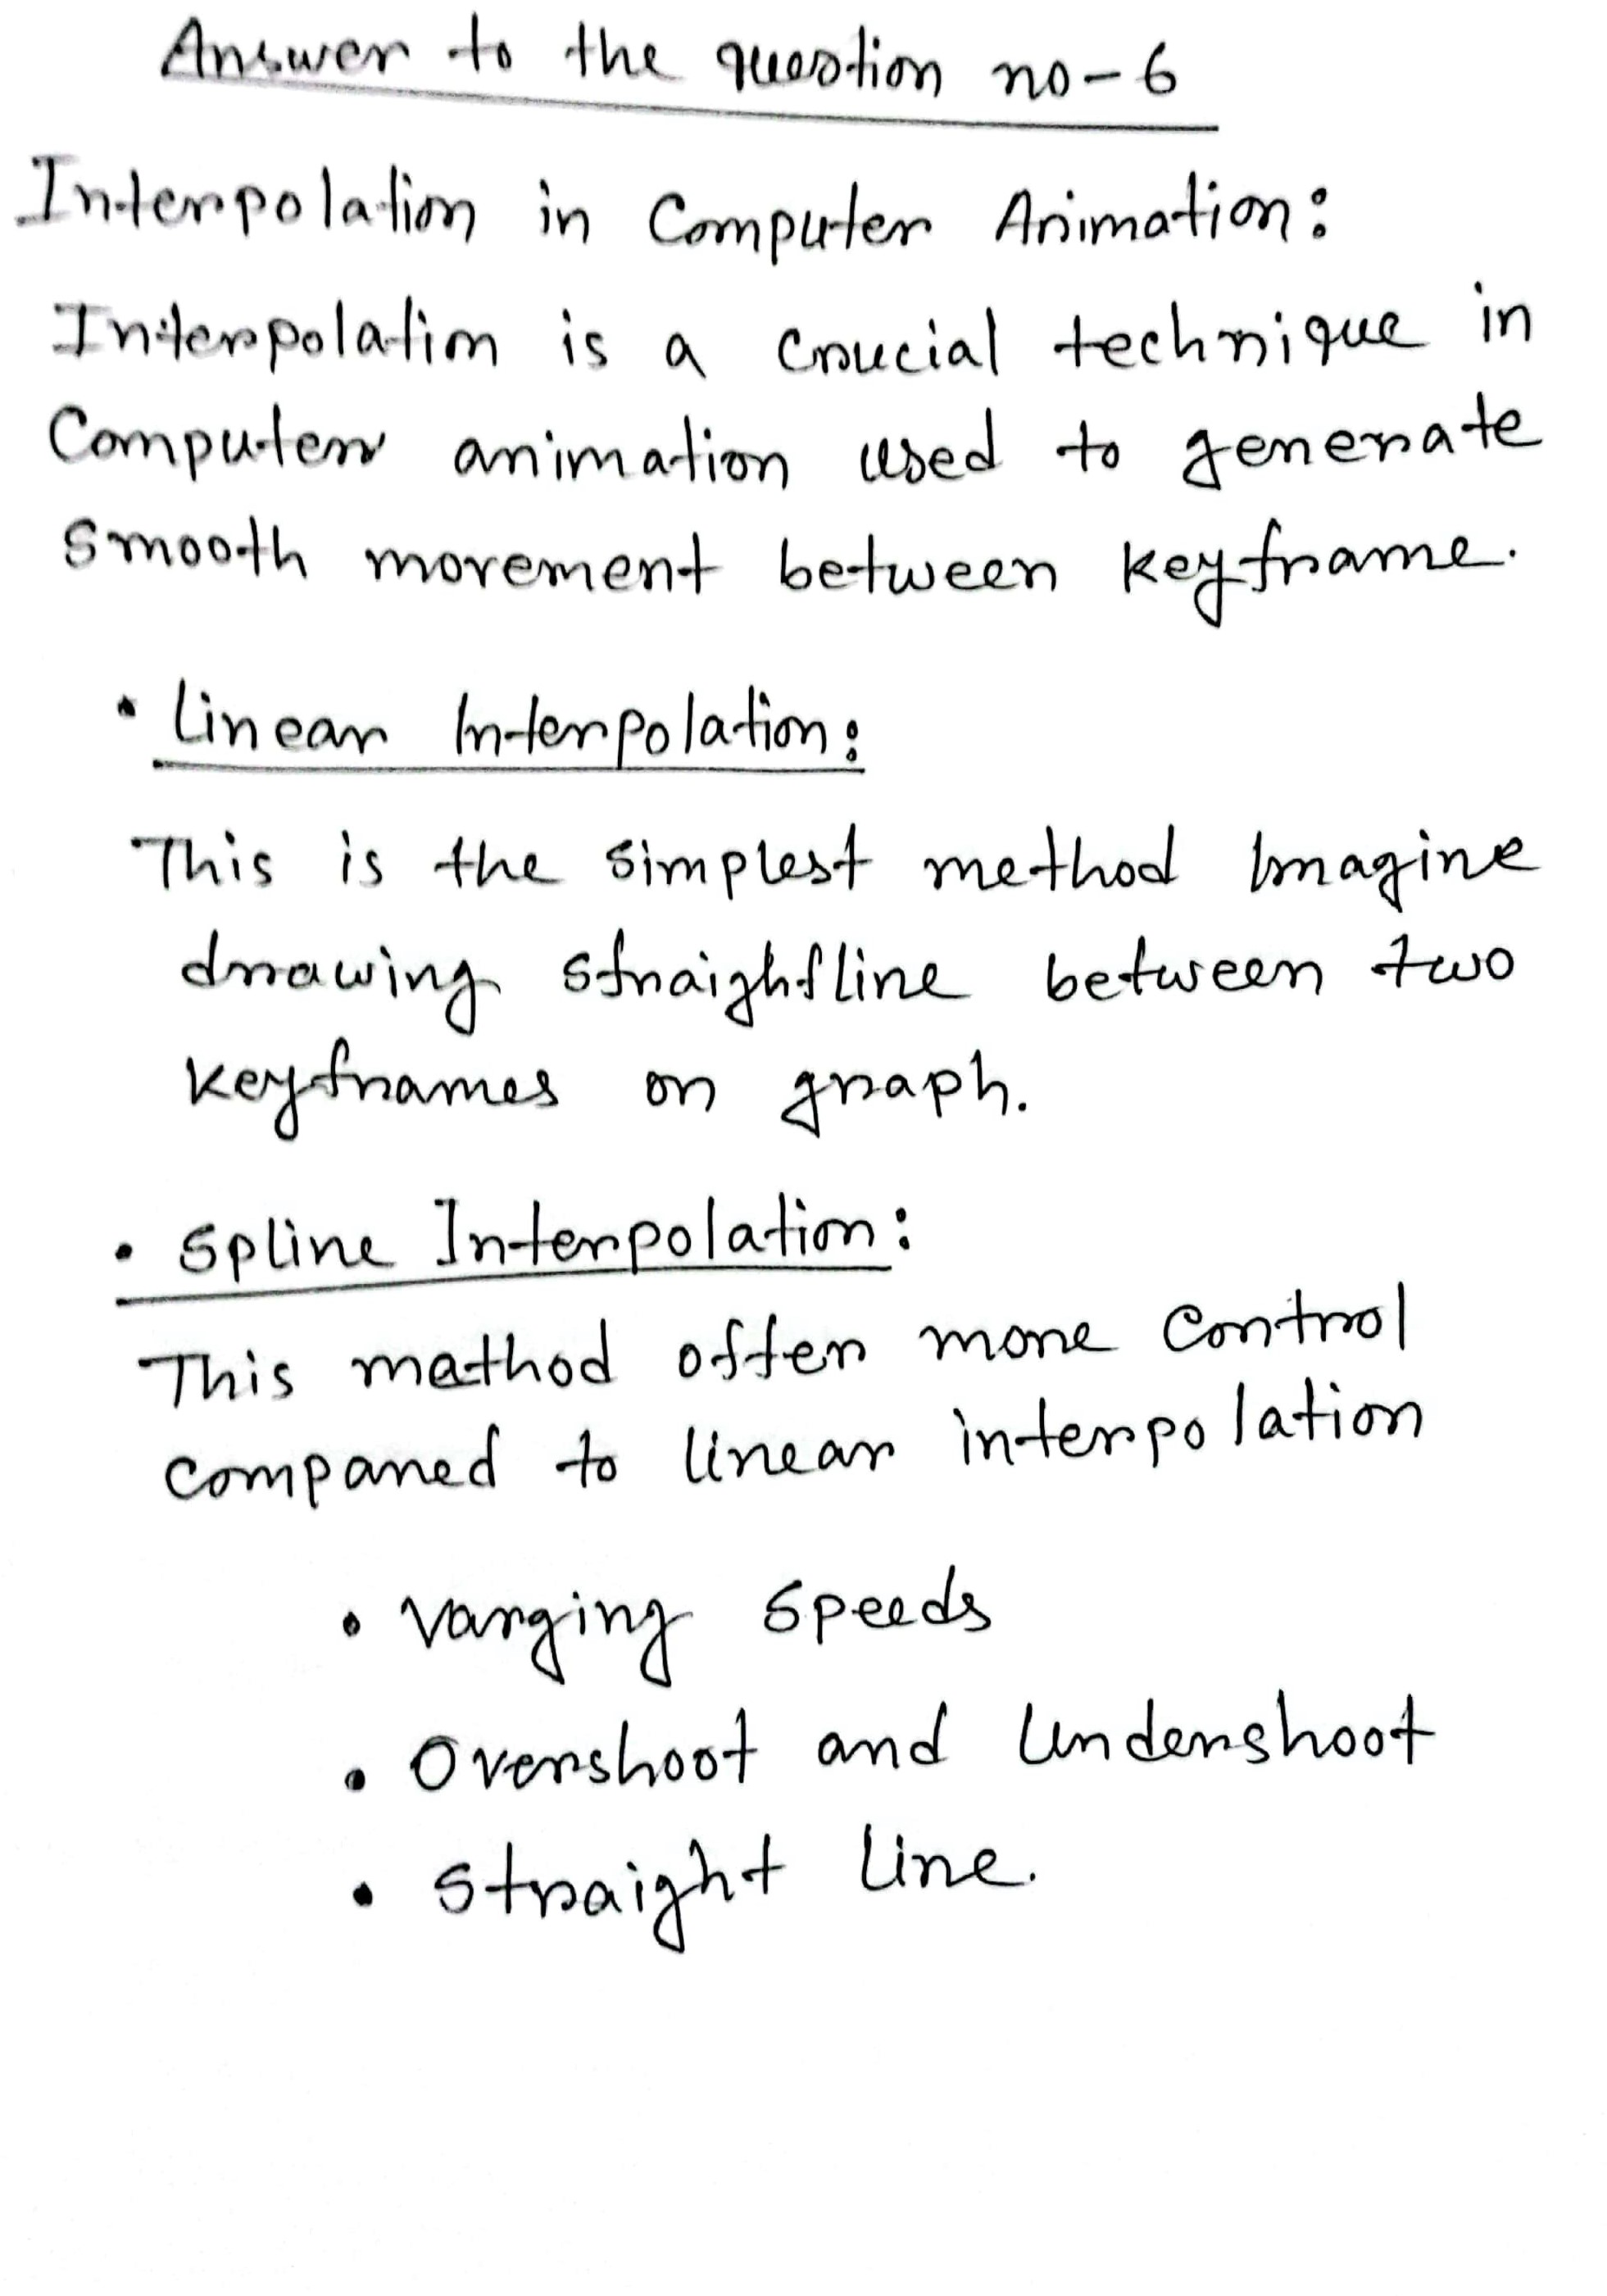 Answer to the question no-6
Interpolation in Computer Animation:
Interpolation is a crucial technique in
Computer animation used to generate
smooth movement between keyframe.
• Linear Interpolation:
This is the simplest method Imagine
drawing straightline between two
keyframes on graph.
• Spline Interpolation:
This mathod offer more control
compared to linear interpolation
• Varging speeds
• Overshoot and Undershoot
• straight line.